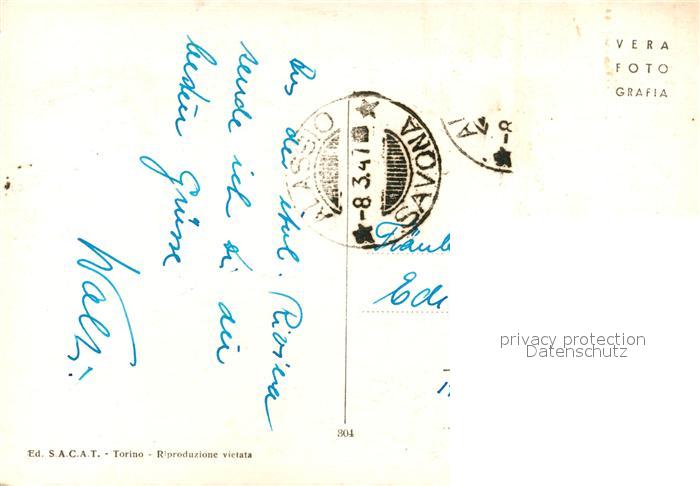 Aus der ital. Riviera
sende ich dir die
besten Grüsse
Walter
ALASSIO
SAVONA
-8.3.47
AL
-8
VERA
FOTO
GRAFIA
Fräul
Edi
privacy protection
Datenschutz
304
Ed. S.A.C.A.T. - Torino - Riproduzione vietata